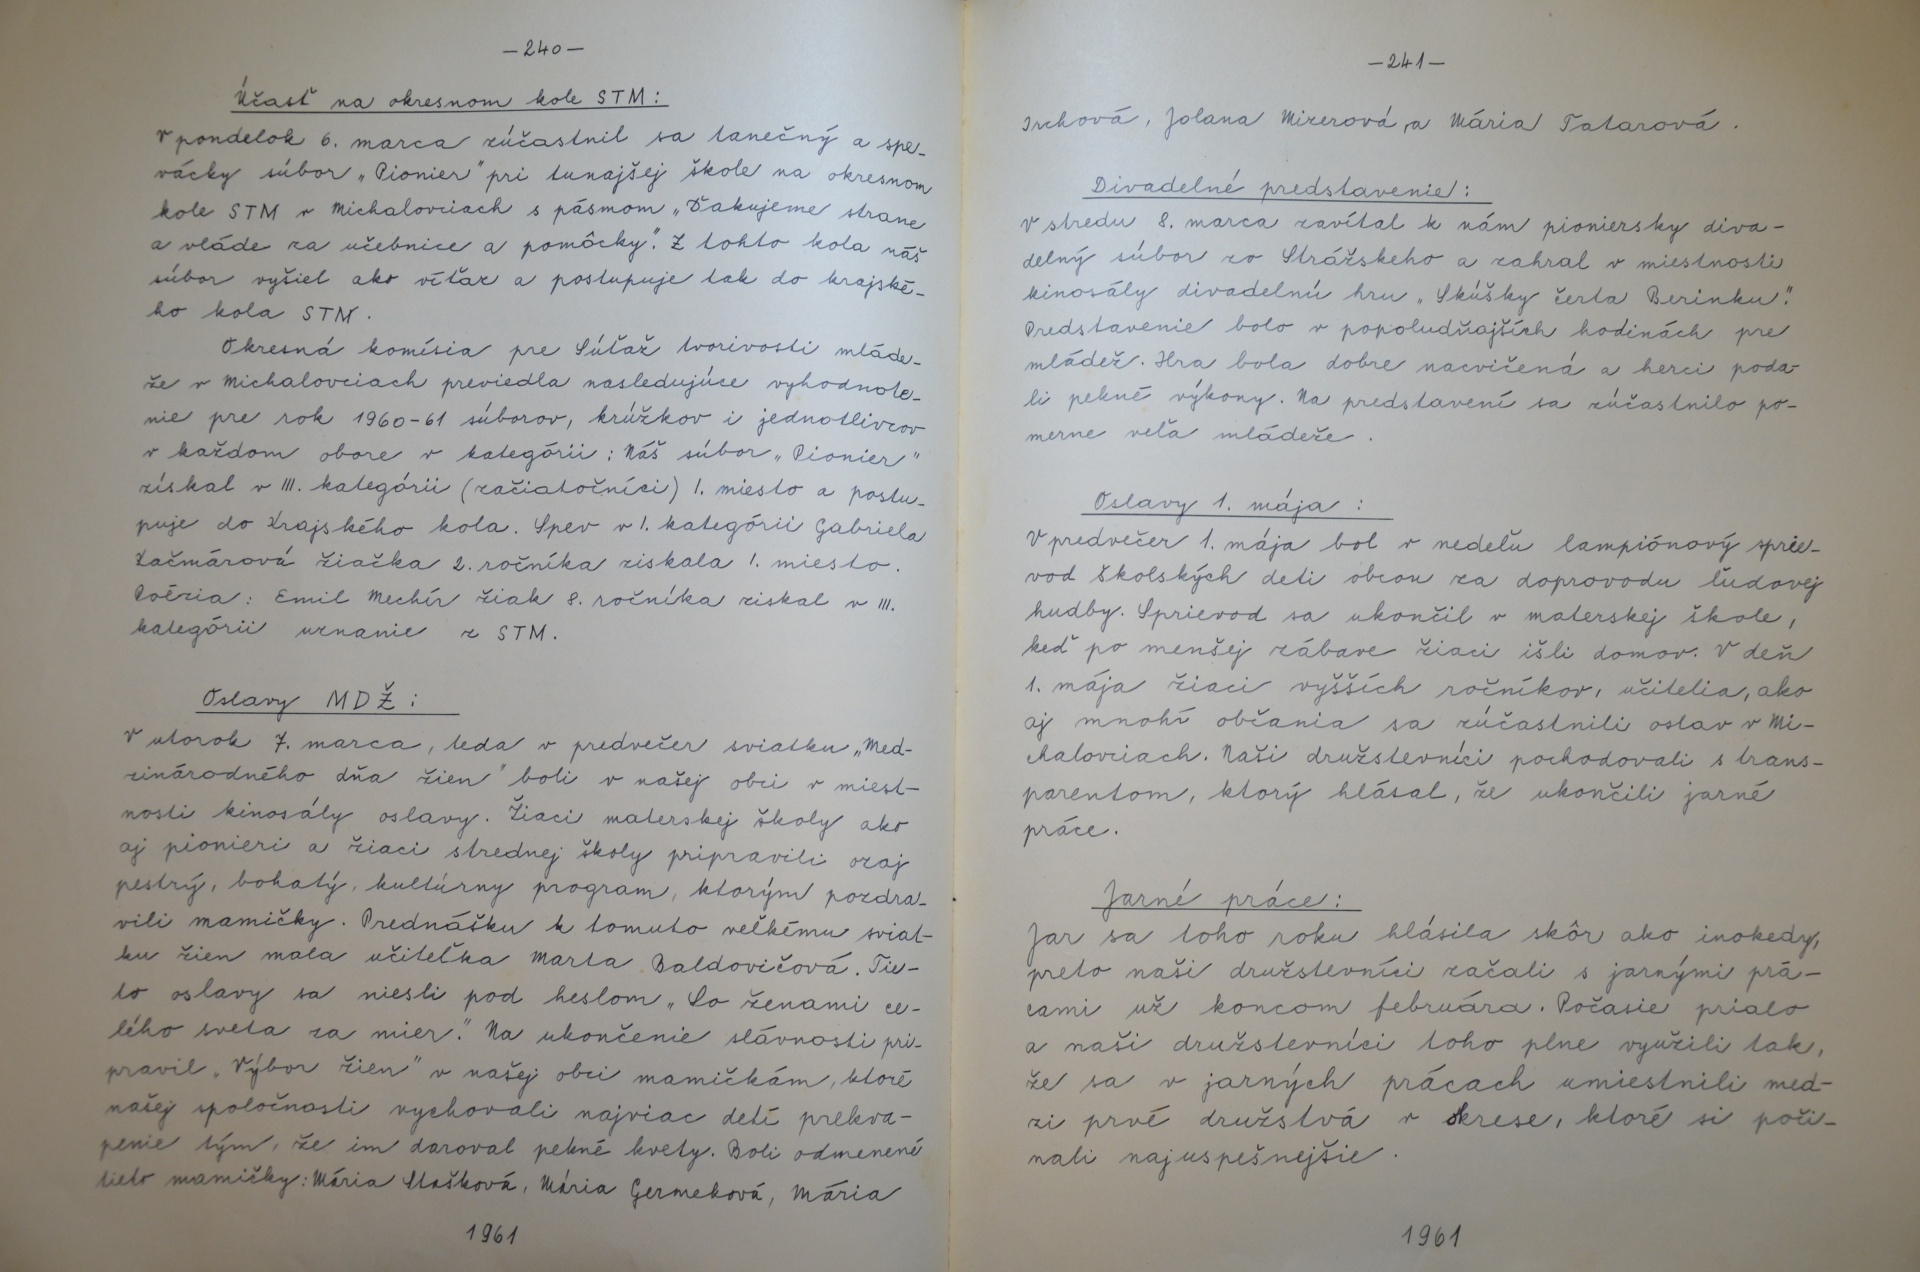 –240–
Účasť na okresnom kole STM:
V pondelok 6. marca zúčastnil sa tanečný a spe-
vácky súbor „Pionier" pri tunajšej škole na okresnom
kole STM v Michalovciach s pásmom „Ďakujeme strane
a vláde za učebnice a pomôcky". Z tohto kola náš
súbor vyšiel ako víťaz a postupuje tak do krajské-
ho kola STM.
Okresná komísia pre Súťaž tvorivosti mláde-
že v Michalovciach previedla nasledujúce vyhodnote-
nie pre rok 1960-61 súborov, krúžkov i jednotlivcov
v každom obore v kategórii: Náš súbor „Pionier"
získal v III. kategórii (začiatočníci) 1. miesto a postu-
puje do Krajského kola. Spev v I. kategórii Gabriela
Kačmárová žiačka 2. ročníka ziskala 1. miesto.
Poézia: Emil Mechír žiak 8. ročníka ziskal v III.
kategórii uznanie z STM.
Oslavy MDŽ:
V utorok 7. marca, teda v predvečer sviatku „Med-
zinárodného dňa žien" boli v našej obci v miest-
nosti kinosály oslavy. Žiaci materskej školy ako
aj pionieri a žiaci strednej školy pripravili ozaj
pestrý, bohatý, kultúrny program, ktorým pozdra-
vili mamičky. Prednášku k tomuto veľkému sviat-
ku žien mala učiteľka Marta Baldovičová. Tie-
to oslavy sa niesli pod heslom „So ženami ce-
lého sveta za mier." Na ukončenie slávnosti pri-
pravil „Výbor žien" v našej obci mamičkám, ktoré
našej spoločnosti vychovali najviac detí prekva-
penie tým, že im daroval pekné kvety. Boli odmenené
tieto mamičky: Mária Stašková, Mária Germeková, Mária
1961
–241–
Jolana Mizerová, a Mária Tatarová.
Divadelné predstavenie:
V stredu 8. marca zavítal k nám pioniersky diva-
delný súbor zo Strážskeho a zahral v miestnosti
kinosály divadelnú hru „Skúšky čerta Berinku".
Predstavenie bolo v popoludňajších hodinách pre
mládež. Hra bola dobre nacvičená a herci poda-
li pekné výkony. Na predstavení sa zúčastnilo po-
merne veľa mládeže.
Oslavy 1. mája:
V predvečer 1. mája bol v nedeľu lampiónový sprie-
vod školských deti obcou za doprovodu ľudovej
hudby. Sprievod sa ukončil v materskej škole,
keď po menšej zábave žiaci išli domov. V deň
1. mája žiaci vyšších ročníkov, učitelia, ako
aj mnohí občania sa zúčastnili osláv v Mi-
chalovciach. Naši družstevníci pochodovali s trans-
parentom, ktorý hlásal, že ukončili jarné
práce.
Jarné práce:
Jar sa toho roku hlásila skôr ako inokedy,
preto naši družstevníci začali s jarnými prá-
cami už koncom februára. Počasie prialo
a naši družstevníci toho plne využili tak,
že sa v jarných prácach umiestnili med-
zi prvé družstvá v okrese, ktoré si poči-
nali najuspešnejšie.
1961